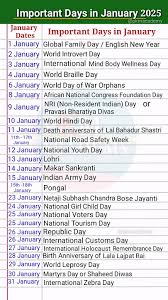 Important Days in January 2025
January Dates
Important Days in January
1 January Global Family Day / English New Year
2 January World Introvert Day
3 January International Mind Body Wellness Day
4 January World Braille Day
6 January World Day of War Orphans
8 January African National Congress Foundation Day
9 January NRI (Non-Resident Indian) Day or
Pravasi Bharatiya Divas
10 January World Hindi Day
11 January Death anniversary of Lal Bahadur Shastri
11th - 17th January National Road Safety Week
12 January National Youth Day
13 January Lohri
14 January Makar Sankranti
15 January Indian Army Day
January Pongal
23 January Netaji Subhash Chandra Bose Jayanti
24 January National Girl Child Day
25 January National Voters Day
25 January National Tourism Day
26 January Republic Day
26 January International Customs Day
27 January International Holocaust Remembrance Day
28 January Birth Anniversary of Lala Lajpat Rai
30 January World Leprosy Day
30 January Martyrs Day or Shaheed Diwas
31 January International Zebra Day